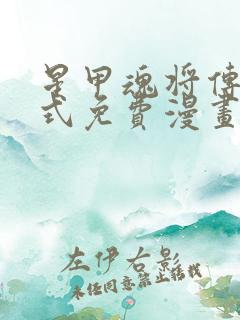 星甲魂将傳
式免費漫畫
左伊右影
未经同意禁止转载